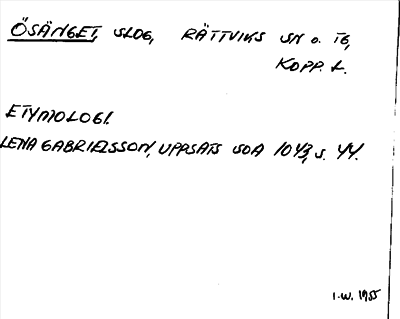 ÖSÄNGET, SLOG, RÄTTVIKS SN O. TG,
KOPP. L.
ETYMOLOGI.
LENA GABRIELSSON, UPPSATS UOA 1043, S. 44.
I.W. 1955